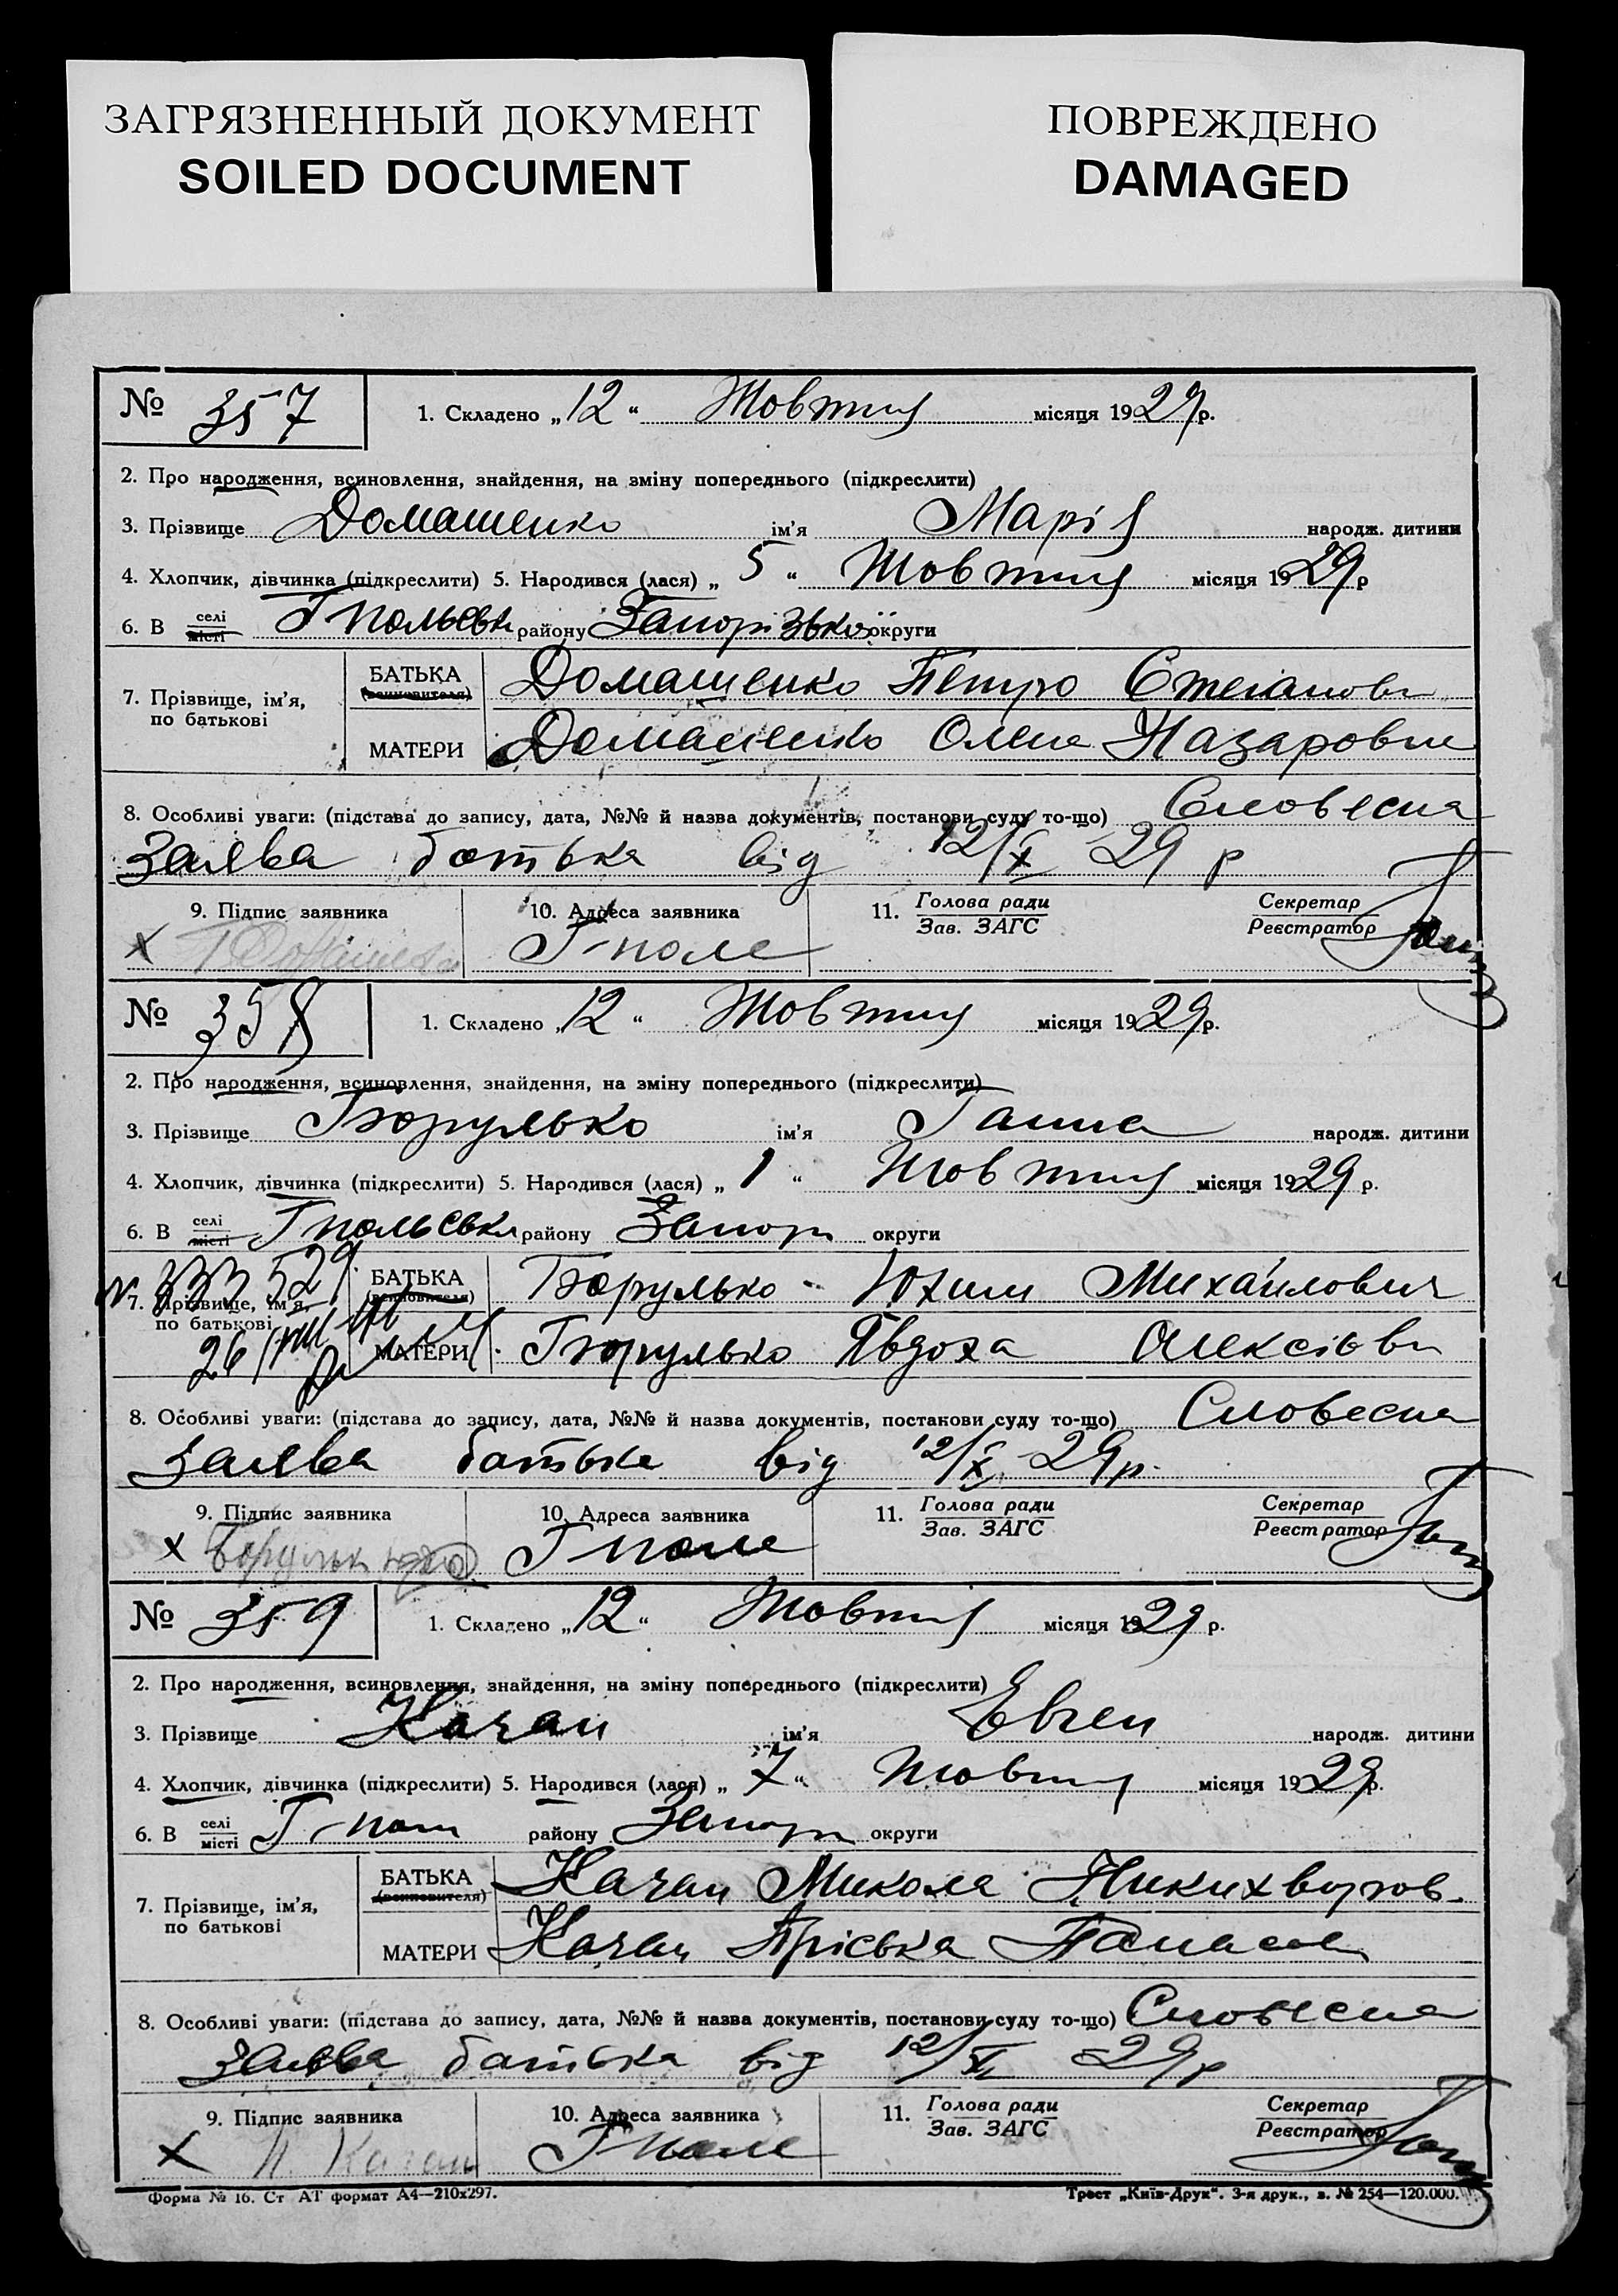 ЗАГРЯЗНЕННЫЙ ДОКУМЕНТ
SOILED DOCUMENT
ПОВРЕЖДЕНО
DAMAGED
№ 357 1. Складено „12“ Жовтня місяця 1929 р.
2. Про народження, всиновлення, знайдення, на зміну попереднього (підкреслити)
3. Прізвище Домашенко ім'я Марія народж. дитини
4. Хлопчик, дівчинка (підкреслити) 5. Народився (лася) „5“ Жовтня місяця 1929 р
6. В селі місті Гпольськ району Запорізької округи
7. Прізвище, ім'я, по батькові
БАТЬКА (всиновителя) Домашенко Петро Степанови
МАТЕРИ Домашенко Олена Назаровна
8. Особливі уваги: (підстава до запису, дата, №№ й назва документів, постанови суду то-що) Словесна
Заява батька від 12/X 29 р
9. Підпис заявника 10. Адреса заявника 11. Голова ради Зав. ЗАГС Секретар Реєстратор
X Г-поле
№ 358 1. Складено „12“ Жовтня місяця 1929 р.
2. Про народження, всиновлення, знайдення, на зміну попереднього (підкреслити)
3. Прізвище Борулько ім'я Ганна народж. дитини
4. Хлопчик, дівчинка (підкреслити) 5. Народився (лася) „1“ Жовтня місяця 1929 р.
6. В селі місті Гпольськ району Запор округи
7. Прізвище, ім'я, по батькові
БАТЬКА (всиновителя) Борулько Юхим Михайлович
МАТЕРИ Борулько Явдоха Олексіївн
8. Особливі уваги: (підстава до запису, дата, №№ й назва документів, постакови суду то-що) Словесна
Заява батька від 12/X 29 р.
9. Підпис заявника 10. Адреса заявника 11. Голова ради Зав. ЗАГС Секретар Реєстратор
X Борульк Г поле
№ 359 1. Складено „12“ Жовтня місяця 1929 р.
2. Про народження, всиновлення, знайдення, на зміну попереднього (підкреслити)
3. Прізвище Качан ім'я Евген народж. дитини
4. Хлопчик, дівчинка (підкреслити) 5. Народився (лася) „7“ Жовтня місяця 1929 р.
6. В селі місті Г-пол району Запор округи
7. Прізвище, ім'я, по батькові
БАТЬКА (всиновителя) Качан Микола Никихворов.
МАТЕРИ Качан Пріська Панасов
8. Особливі уваги: (підстава до запису, дата, №№ й назва документів, постанови суду то-що) Словесна
Заява батька від 12/X 29 р
9. Підпис заявника 10. Адреса заявника 11. Голова ради Зав. ЗАГС Секретар Реєстратор
X Н. Качан Г поле
Форма № 16. Ст АТ формат А4—210х297. Трест „Київ-Друк“. 3-я друк., з. № 254—120.000.